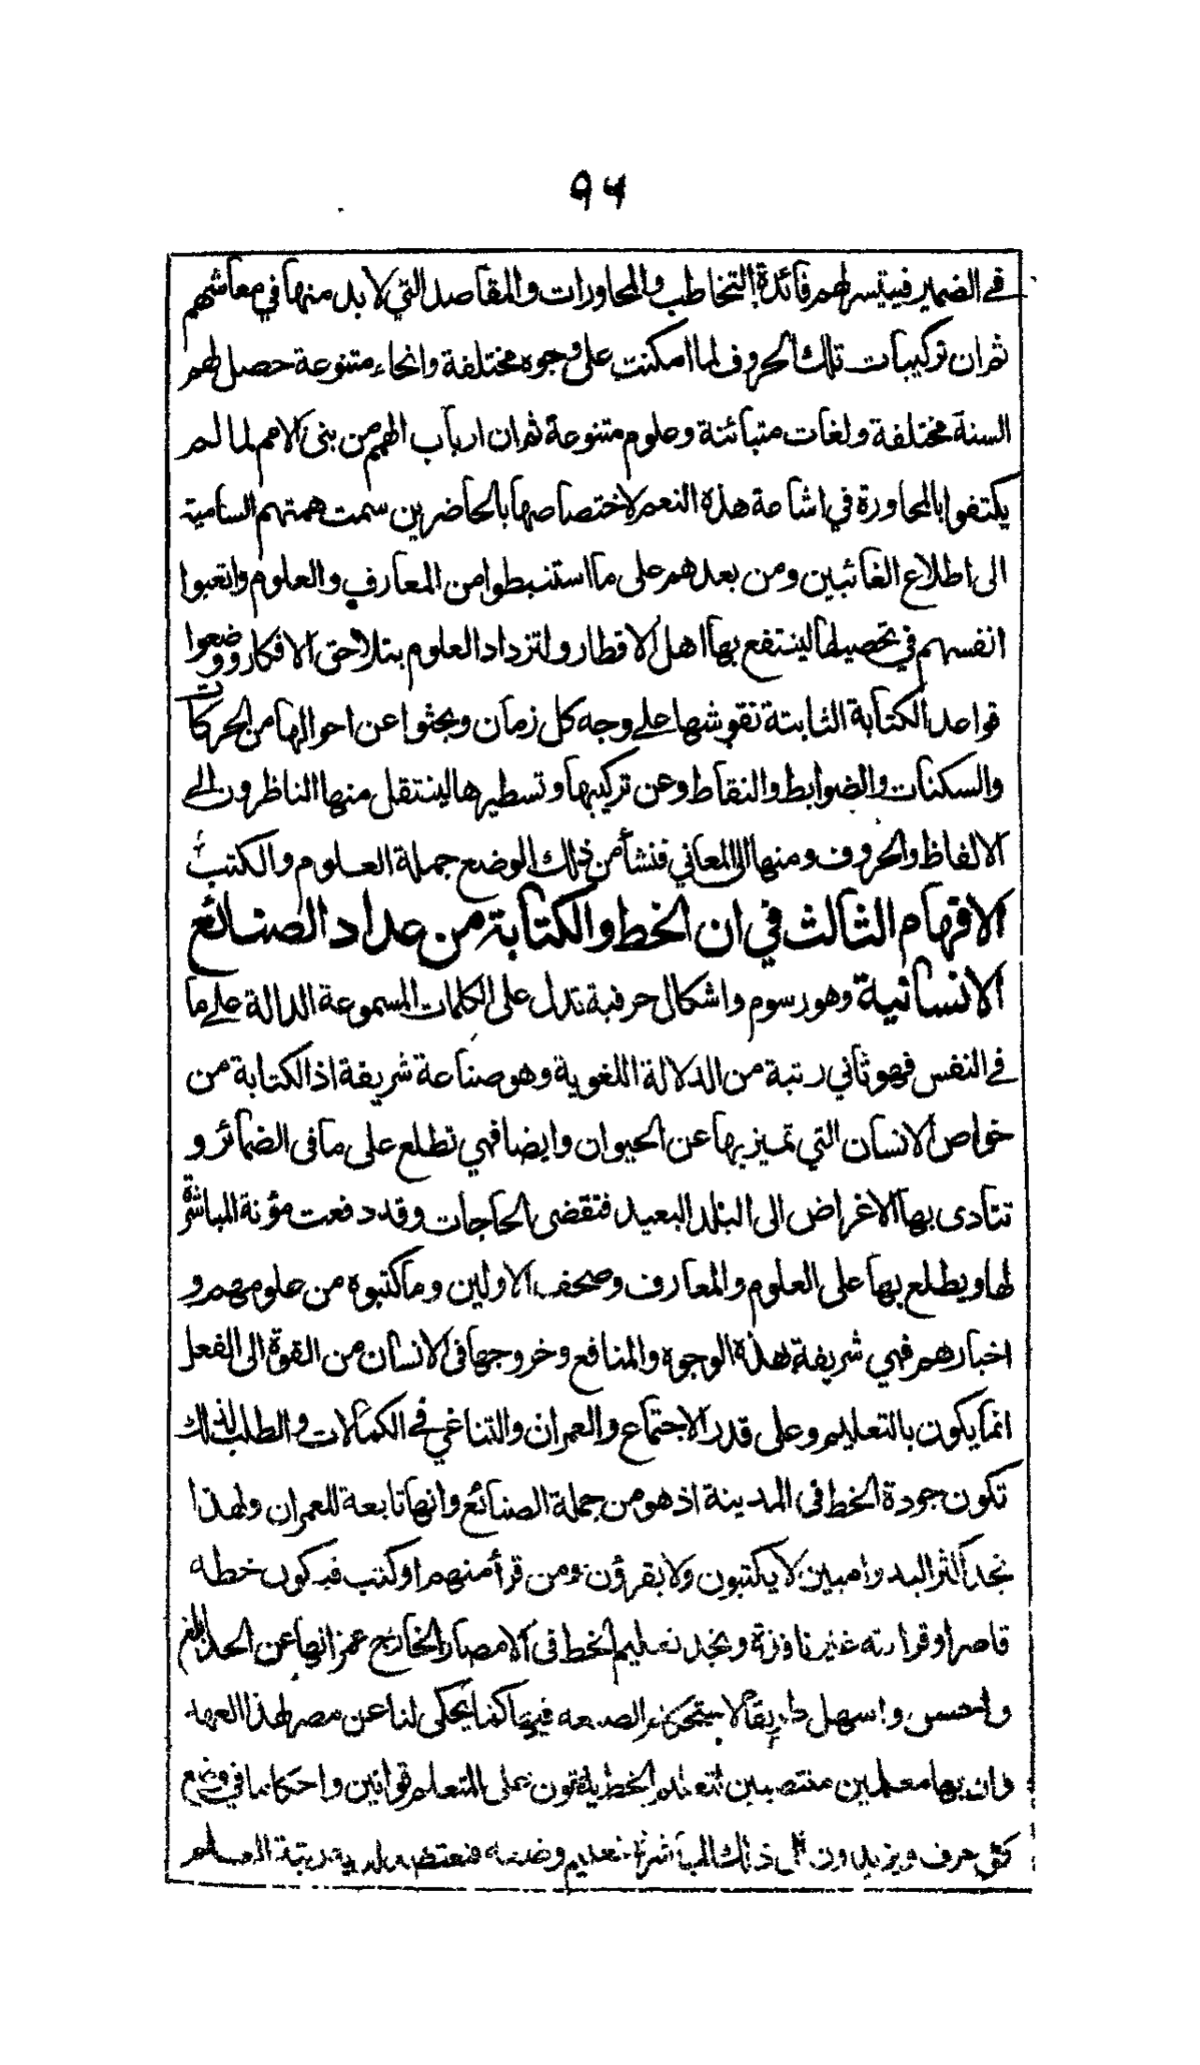 ٩٤
في الضمير فيتيسر لهم فائدة التخاطب والمحاورات والمقاصد التي لا بد منها في معاشهم
ثم ان تركيبات تلك الحروف لما امكنت على وجوه مختلفة وانحاء متنوعة حصل لهم
السنة مختلفة ولغات متبائنة وعلوم متنوعة ثم ان ارباب الهمم من بنى الامم لما لم
يكتفوا بالمحاورة في اشاعة هذه النعم لاختصاصها بالحاضرين سمت همتهم السامية
الى اطلاع الغائبين ومن بعدهم على ما استنبطوا من المعارف والعلوم واتعبوا
انفسهم في تحصيلها لينتفع بها اهل الاقطار ولتزداد العلوم بتلاحق الافكار ووضعوا
قواعد الكتابة الثابتة نقوشها على وجه كل زمان وبحثوا عن احوالها من الحركات
والسكنات والضوابط والنقاط وعن تركيبها وتسطيرها لينتقل منها الناظرون الى
الالفاظ والحروف ومنها الى المعاني فنشأ من ذلك الوضع جملة العلوم والكتب
الافهام الثالث في ان الخط والكتابة من عداد الصنائع
الانسانية وهو رسوم واشكال حرفية تدل على الكلمات المسموعة الدالة على ما
في النفس فهو ثاني رتبة من الدلالة اللغوية وهو صناعة شريفة اذ الكتابة من
خواص الانسان التي تميز بها عن الحيوان وايضا فهي تطلع على ما في الضمائر و
تتادى بها الاغراض الى البلد البعيد فتقضى الحاجات وقد دفعت مؤنة المباشرة
لها ويطلع بها على العلوم والمعارف وصحف الاولين وما كتبوه من علومهم و
اخبارهم فهي شريفة لهذه الوجوه والمنافع وخروجها في الانسان من القوة الى الفعل
انما يكون بالتعليم وعلى قدر الاجتماع والعمران والتناغي في الكمالات والطلب لذلك
تكون جودة الخط في المدينة اذ هو من جملة الصنائع وانها تابعة للعمران ولهذا
نجد اكثر البدو اميين لا يكتبون ولا يقرؤن ومن قرأ منهم او كتب فيكون خطه
قاصرا وقراءته غير نافذة ونجد تعليم الخط في الامصار الخارج عمرانها عن الحد ابلغ
واحسن واسهل طريقا لاستحكام الصنعه فيها كما يحكى لنا عن مصر لهذا العهد
وان بها معلمين منتصبين لتعليم الخط يلقون على المتعلم قوانين واحكاما في وضع
كل حرف ويزيدون الى ذلك المباشرة بتعليم وضعه فتعتضد لديه رتبة العلم